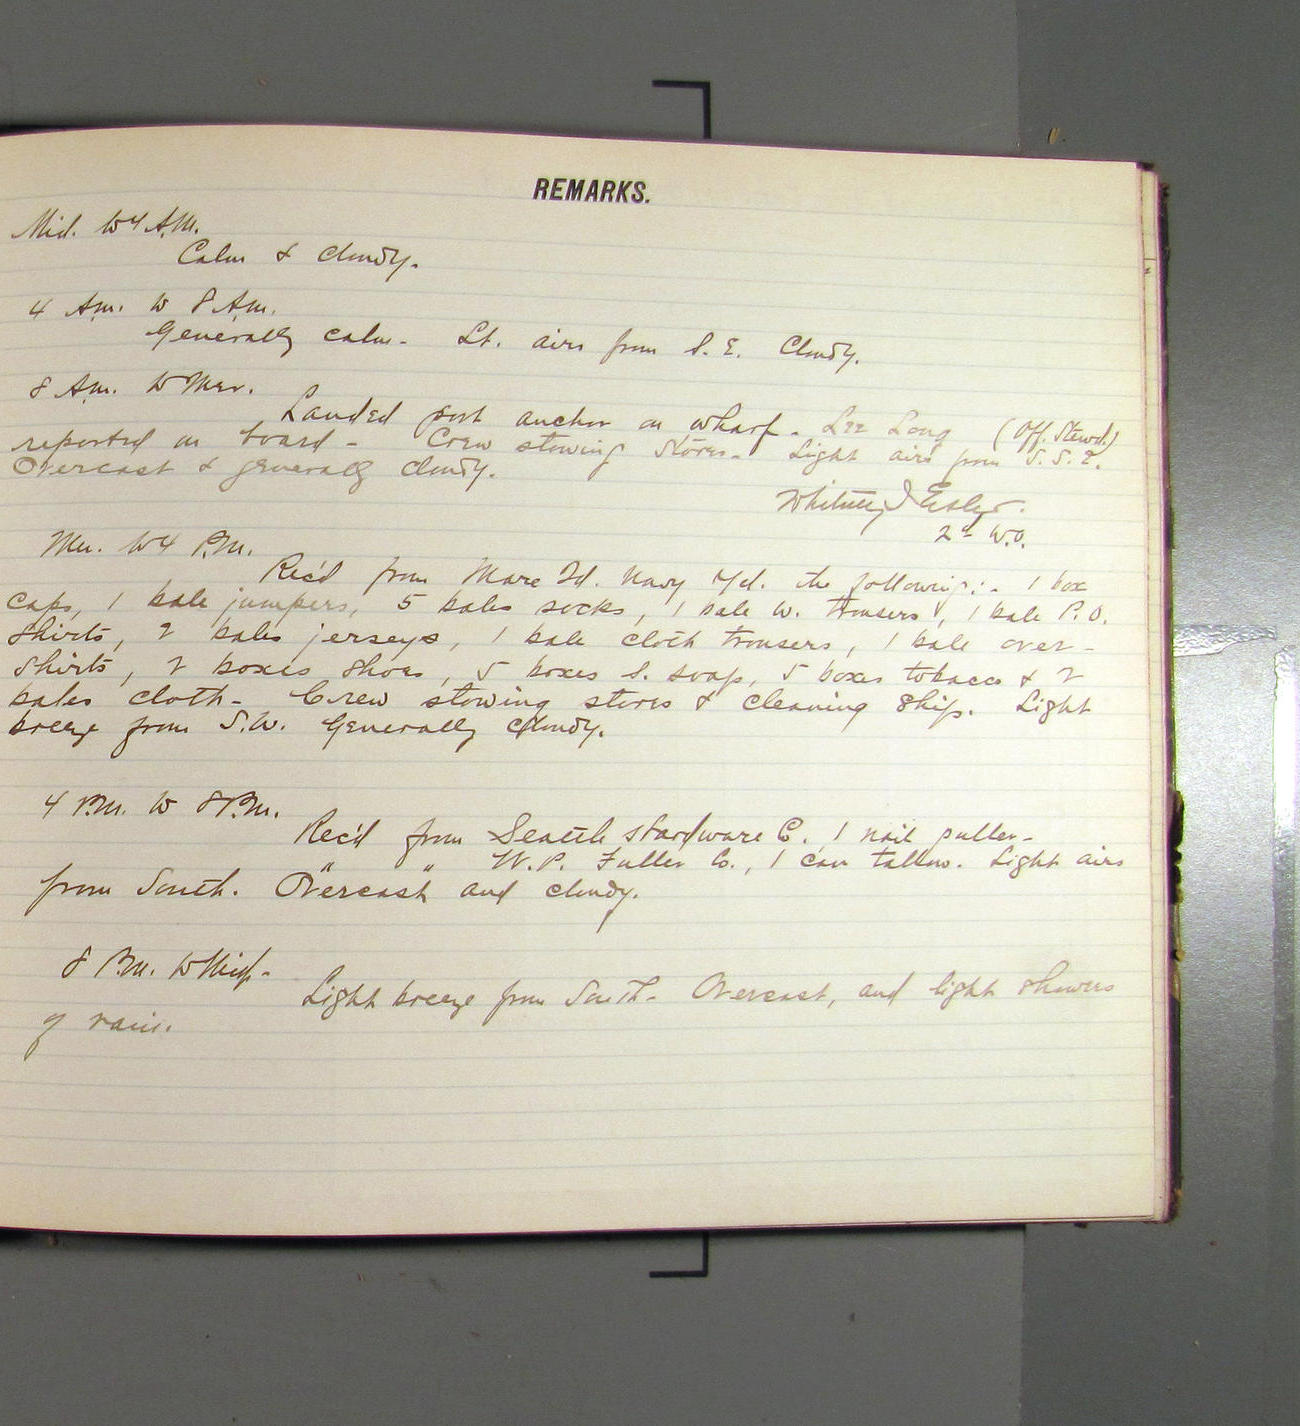 REMARKS.
Mid. to 4 A.M.
Calm & cloudy.
4 A.m. to 8 A.m.
Generally calm - Lt. airs from S.E. Cloudy.
8 A.m. to Mer.
Landed port anchor on wharf - Lee Long (Off. Stewd.)
reported on board - Crew stowing stores - Light airs from S.S.E.
Overcast & generally cloudy.
2d W.O.
Mer. to 4 P.M.
Rec'd from Mare Id. Navy Yd. the following:- 1 box
caps, 1 bale jumpers, 5 bales socks, 1 bale w. trousers, 1 bale P.O.
shirts, 2 bales jerseys, 1 bale cloth trousers, 1 bale over-
shirts, 2 boxes shoes, 5 boxes s. soap, 5 boxes tobacco & 2
bales cloth - Crew stowing stores & cleaning ship. Light
breeze from S.W. Generally cloudy.
4 P.m. to 8 P.m.
Rec'd from Seattle Hardware Co. 1 nail puller -
" " W.P. Fuller Co., 1 can tallow. Light airs
from South. Overcast and cloudy.
8 P.m. to Mid -
Light breeze from South - Overcast, and light showers
of rain.